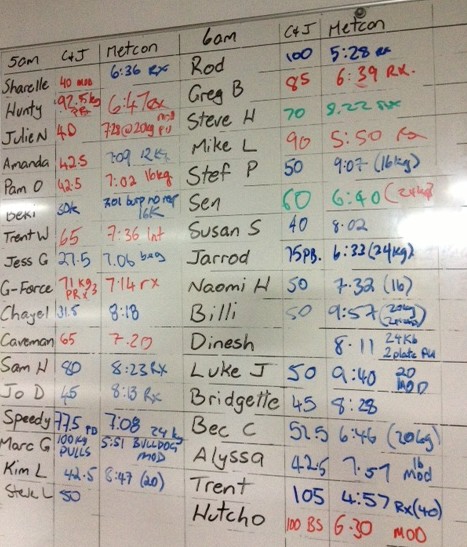 5am C&J Metcon
Sharelle 40 MOD 6:36 RX
Hunty 92.5kg 6:47 RX
Julie N 40 7:28@20kg PU
Amanda 42.5 7:09 12kg
Pam O 42.5 7:02 16kg
Beki 30k 7:01 burp no rep 16K
Trent W 65 7:36 Int
Jess G 27.5 7:06 bag
G-Force 71kg PR 7:14 rx
Chayel 31.5 8:18
Caveman 65 7:20
Sam H 80 8:23 Rx
Jo D 45 8:13 Rx
Speedy 77.5 PB 7:08 24k
Marc G 100kg PULLS 5:51 BULLDOG MOD
Kim L 42.5 8:47 (20)
Steve L 50
6am C&J Metcon
Rod 100 5:28 RX
Greg B 85 6:39 RX.
Steve H 70 8:22 RX
Mike L 90 5:50 Rx
Stef P 50 9:07 (16kg)
Sen 60 6:40 (24kg)
Susan S 40 8:02
Jarrod 75PB. 6:33 (24kg)
Naomi H 50 7:32 (16)
Billi 50 9:57 (20kg)
Dinesh 8:11 24KG 2 plate PU
Luke J 50 9:40 20 MOD
Bridgette 45 8:28
Bec C 52.5 6:46 (20kg)
Alyssa 42.5 7:57 16 mod
Trent 105 4:57 RX (40)
Hutcho 100 BS 6:30 MOD